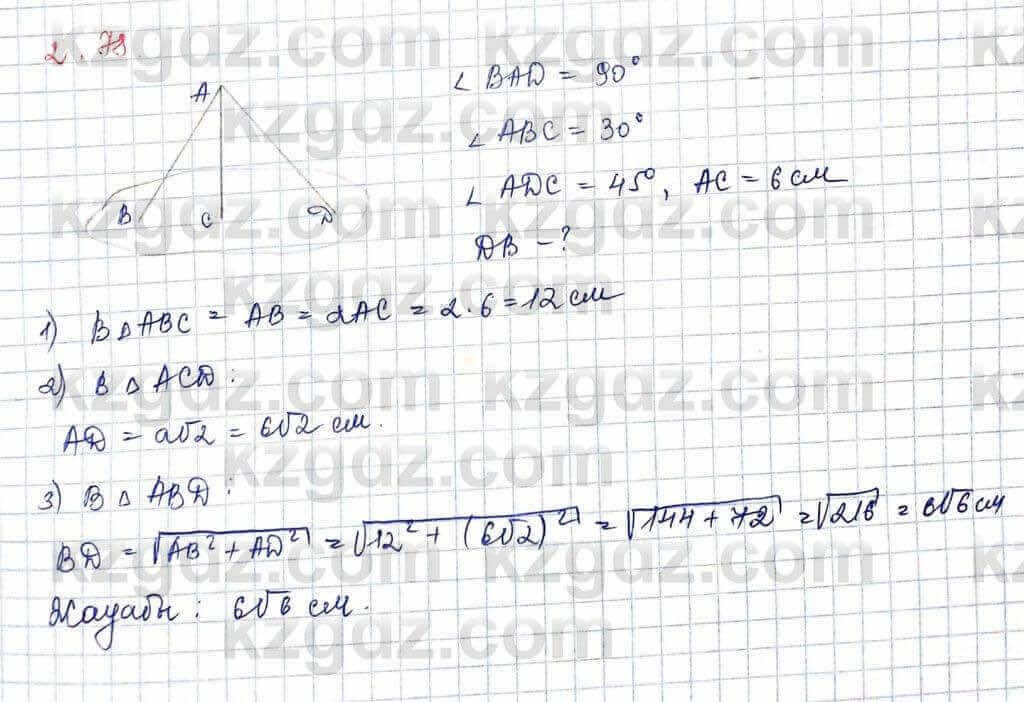 2.78
A
B C D
∠ BAD = 90°
∠ ABC = 30°
∠ ADC = 45°, AC = 6 см
DB - ?
1) В △ ABC = AB = 2AC = 2·6 = 12 см
2) В △ ACD:
AD = a√2 = 6√2 см.
3) В △ ABD:
BD = √AB² + AD² = √12² + (6√2)² = √144 + 72 = √216 = 6√6 см
Жауабы: 6√6 см.
kzgdz.com